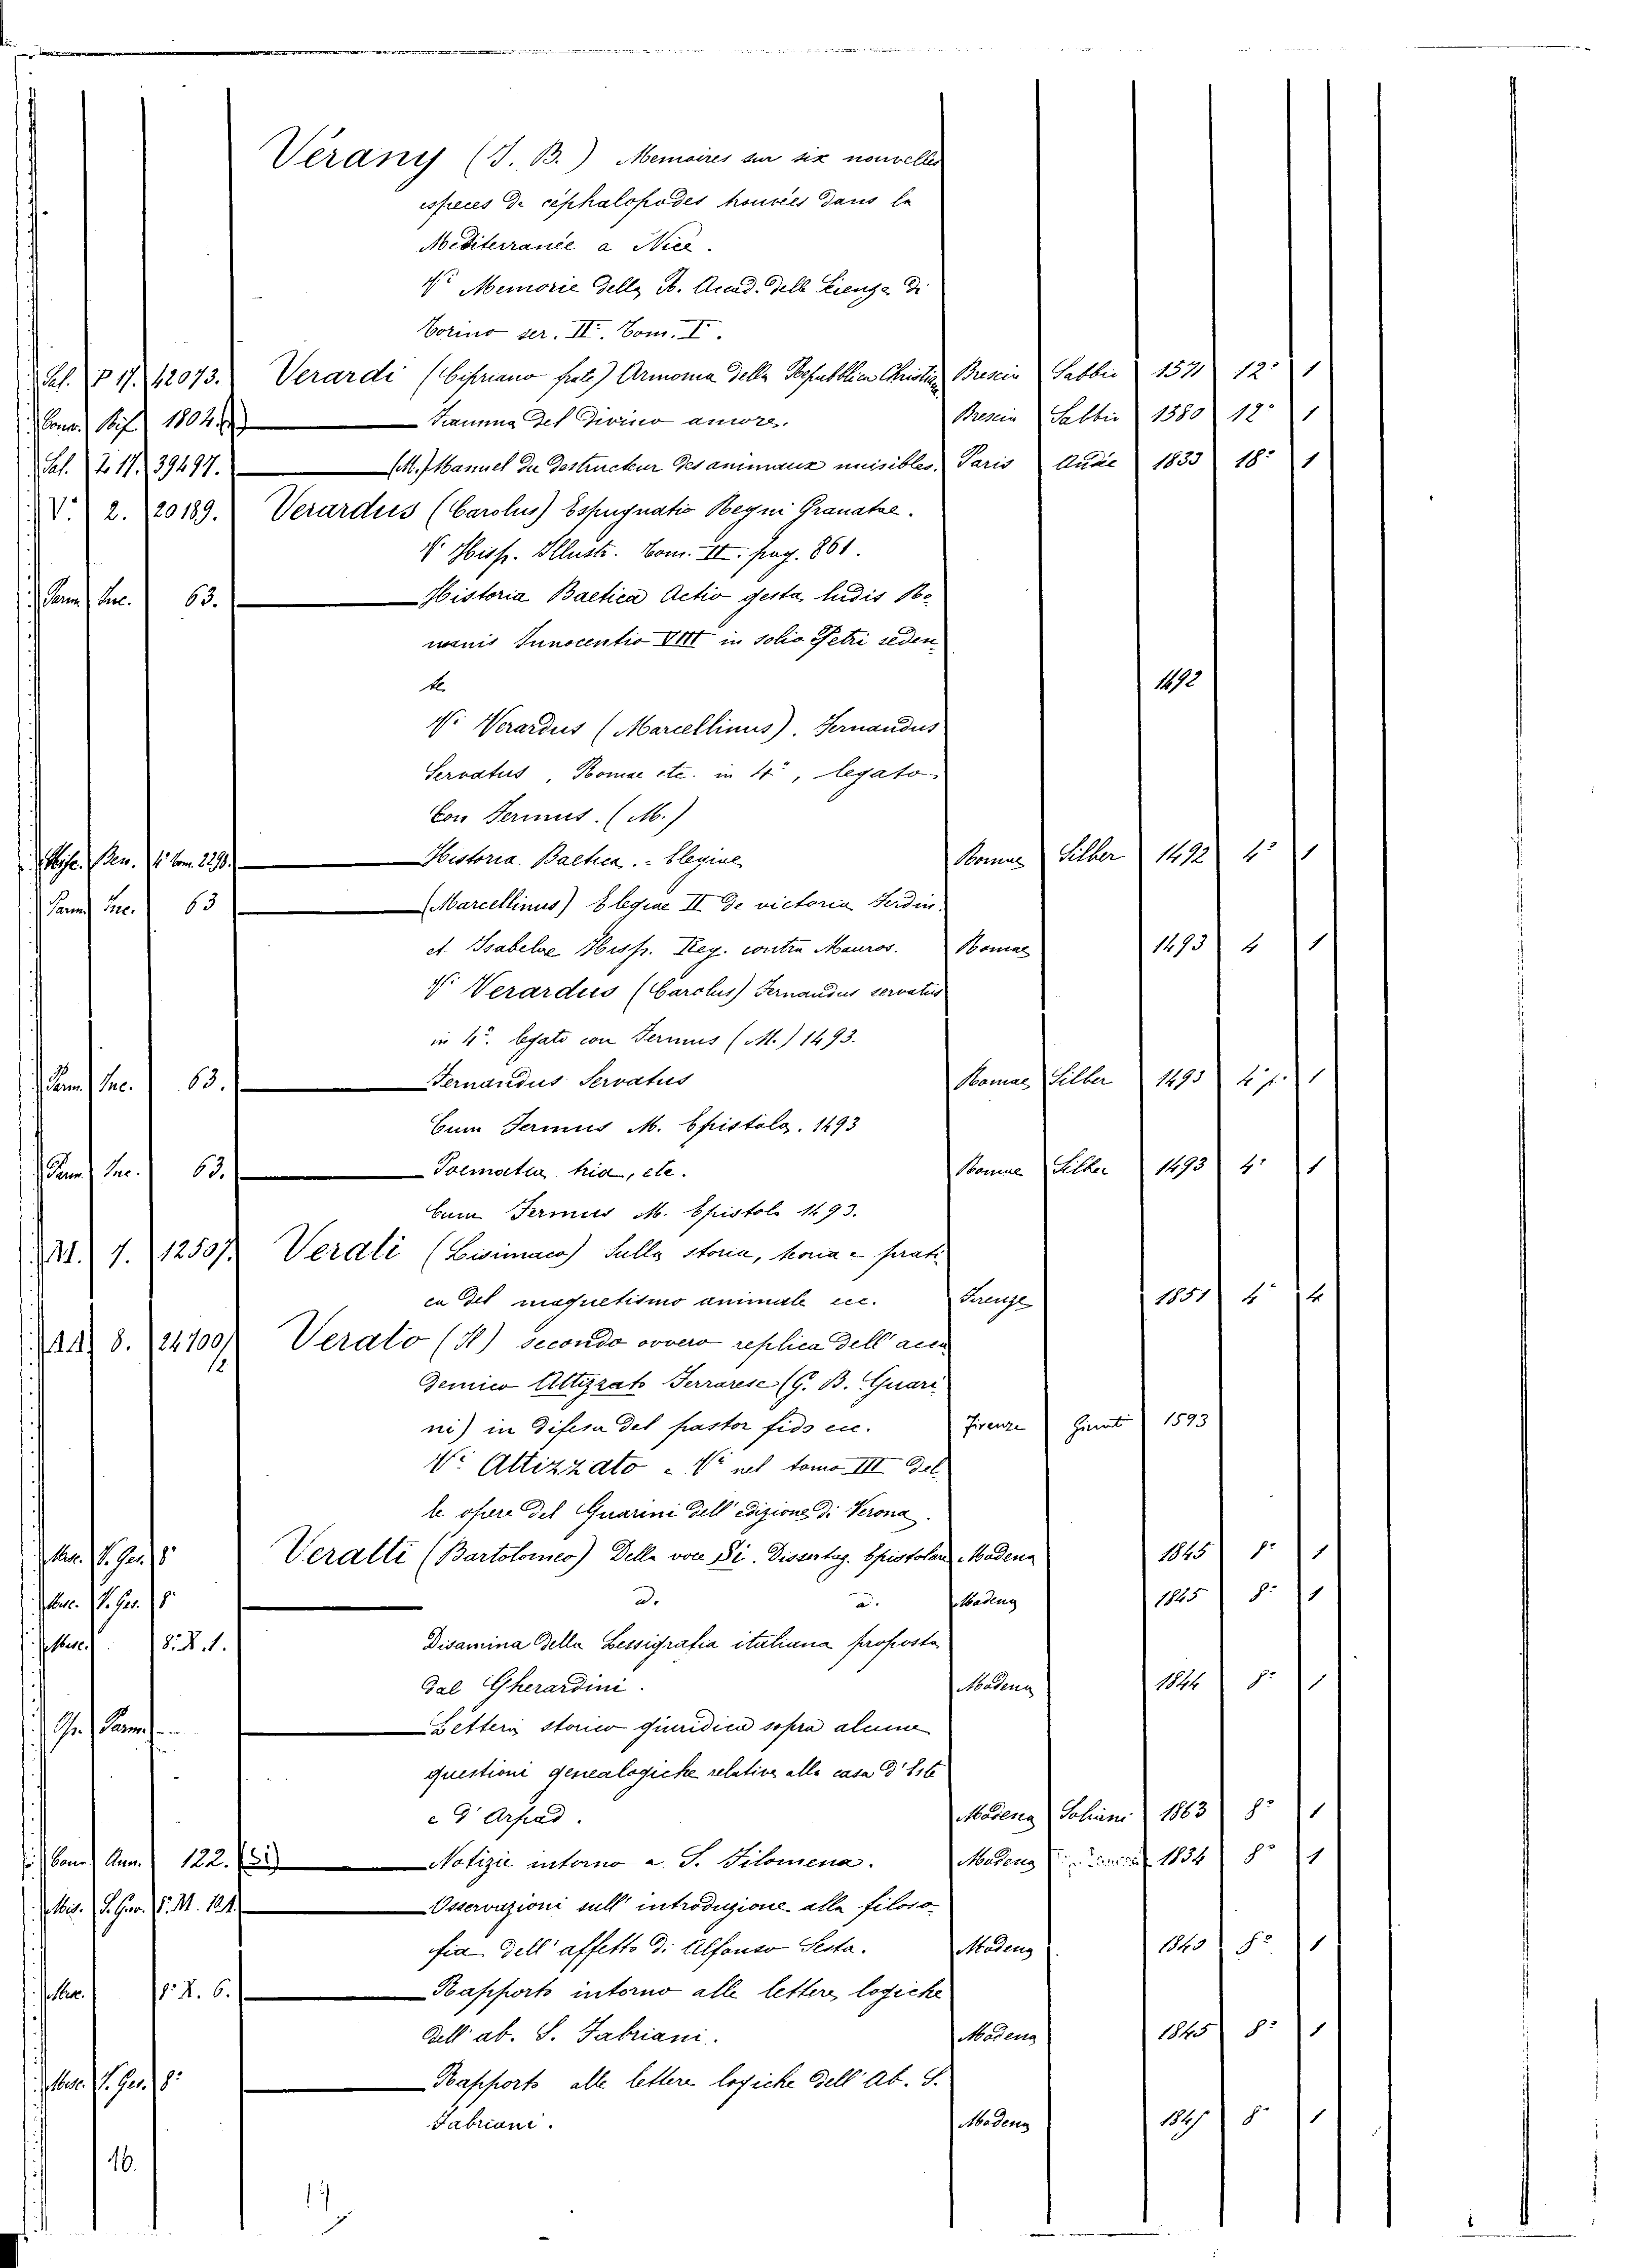 Verany (J. B.) Memoires sur six nouvelles
especes de céphalopodes trouvées dans la
Mediterranée a Nice.
V. Memorie della R. Acad. delle Scienze di
Torino ser. II. Tom. I.
Sal. P 17. 42073. Verardi (Cipriano frate) Armonia della Repubblica Christiana Brescia Sabbio 1571 12° 1
1804 Fiamma del divino amore. Brescia Sabbio 1580 12° 1
Sal. Z. 17. 39497. (M.) Manuel du destructeur des animaux nuisibles. Paris Audie 1833 18° 1
V. 2. 20189. Verardus (Carolus) Espugnatio Regni Granatae.
V. Hisp. Illustr. Tom. II. pag. 861.
Parm. Inc. 63. Historia Baetica Actio gesta ludis Ro-
manis Innocentio VIII in solio Petri seden
te 1492
V. Verardus (Marcellinus). Fernandus
Servatus, Romae etc. in 4°, legato
Con Termus. (M.)
Ben. 4° Tom. 2298. Historia Baetica. - Elegiae Romae Silber 1492 4° 1
Parm. Inc. 63 (Marcellinus) Elegiae II de victoria Ferdin.
et Isabelae Hisp. Reg. contra Mauros. Romae 1493 4 1
V. Verardus (Carolus) Fernandus servatus
in 4°. legato con Termus (M.) 1493.
Parm. Inc. 63. Fernandus Servatus Romae Silber 1493 4° p. 1
Cum Termus M. Epistola. 1493
Parm. Inc. 63. Poematia tria, etc. Romae Silber 1493 4° 1
Cum Termus M. Epistola 1493.
M. 7. 12507. Verati (Lisimaco) Sulla storia, teoria e prati
ca del magnetismo animale ec. Firenze 1851 4° 4
AA. 8. 24700/2. Verato (Il) secondo ovvero replica dell' acca
demico Attizzato Ferrarese (G. B. Guari
ni) in difesa del pastor fido ec. Firenze Giunti 1593
V. Attizzato e V. nel tomo III del
le opere del Guarini dell' edizione di Verona.
Misc. V. Ger. 8° Veratti (Bartolomeo) Della voce Si. Dissertaz. Epistolare Modena 1845 8° 1
Misc. V. Ger. 8° d. d. Modena 1845 8° 1
Misc. 8. X. 1. Disamina della Lessigrafia italiana proposta
dal Gherardini. Modena 1844 8° 1
Gr. Parm. Lettera storico giuridica sopra alcune
questioni genealogiche relative alla casa d' Este
e d' Arpad. Modena Soliani 1863 8° 1
Cons. Ann. 122. Notizie intorno a S. Filomena. Modena 1834 8° 1
Mis. S. Ger. 8. M. 121. Osservazioni sull' introduzione alla filoso-
fia dell' affetto di Alfonso Testa. Modena 1843 8° 1
Misc. 8. X. 6. Rapporto intorno alle lettere logiche
dell' ab. S. Fabriani. Modena 1845 8° 1
Misc. V. Ger. 8° Rapporto alle lettere logiche dell' Ab. S.
Fabriani. Modena 1847 8° 1
16.
17